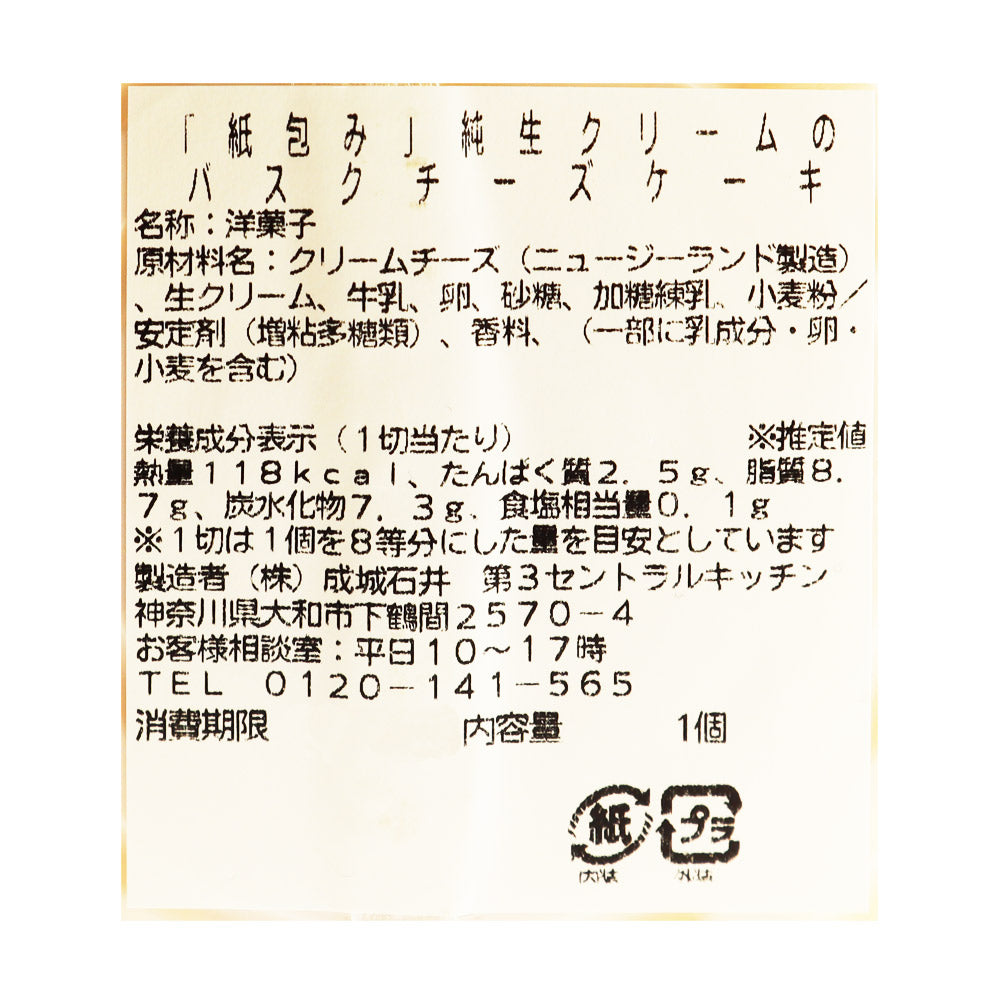 「紙包み」純生クリームの
バスクチーズケーキ
名称：洋菓子
原材料名：クリームチーズ（ニュージーランド製造）
、生クリーム、牛乳、卵、砂糖、加糖練乳、小麦粉／
安定剤（増粘多糖類）、香料、（一部に乳成分・卵・
小麦を含む）
栄養成分表示（１切当たり）　※推定値
熱量１１８ｋｃａｌ、たんぱく質２．５ｇ、脂質８．
７ｇ、炭水化物７．３ｇ、食塩相当量０．１ｇ
※１切は１個を８等分にした量を目安としています
製造者（株）成城石井　第３セントラルキッチン
神奈川県大和市下鶴間２５７０－４
お客様相談室：平日１０～１７時
ＴＥＬ　０１２０－１４１－５６５
消費期限　内容量　１個
紙　プラ
内は　外は